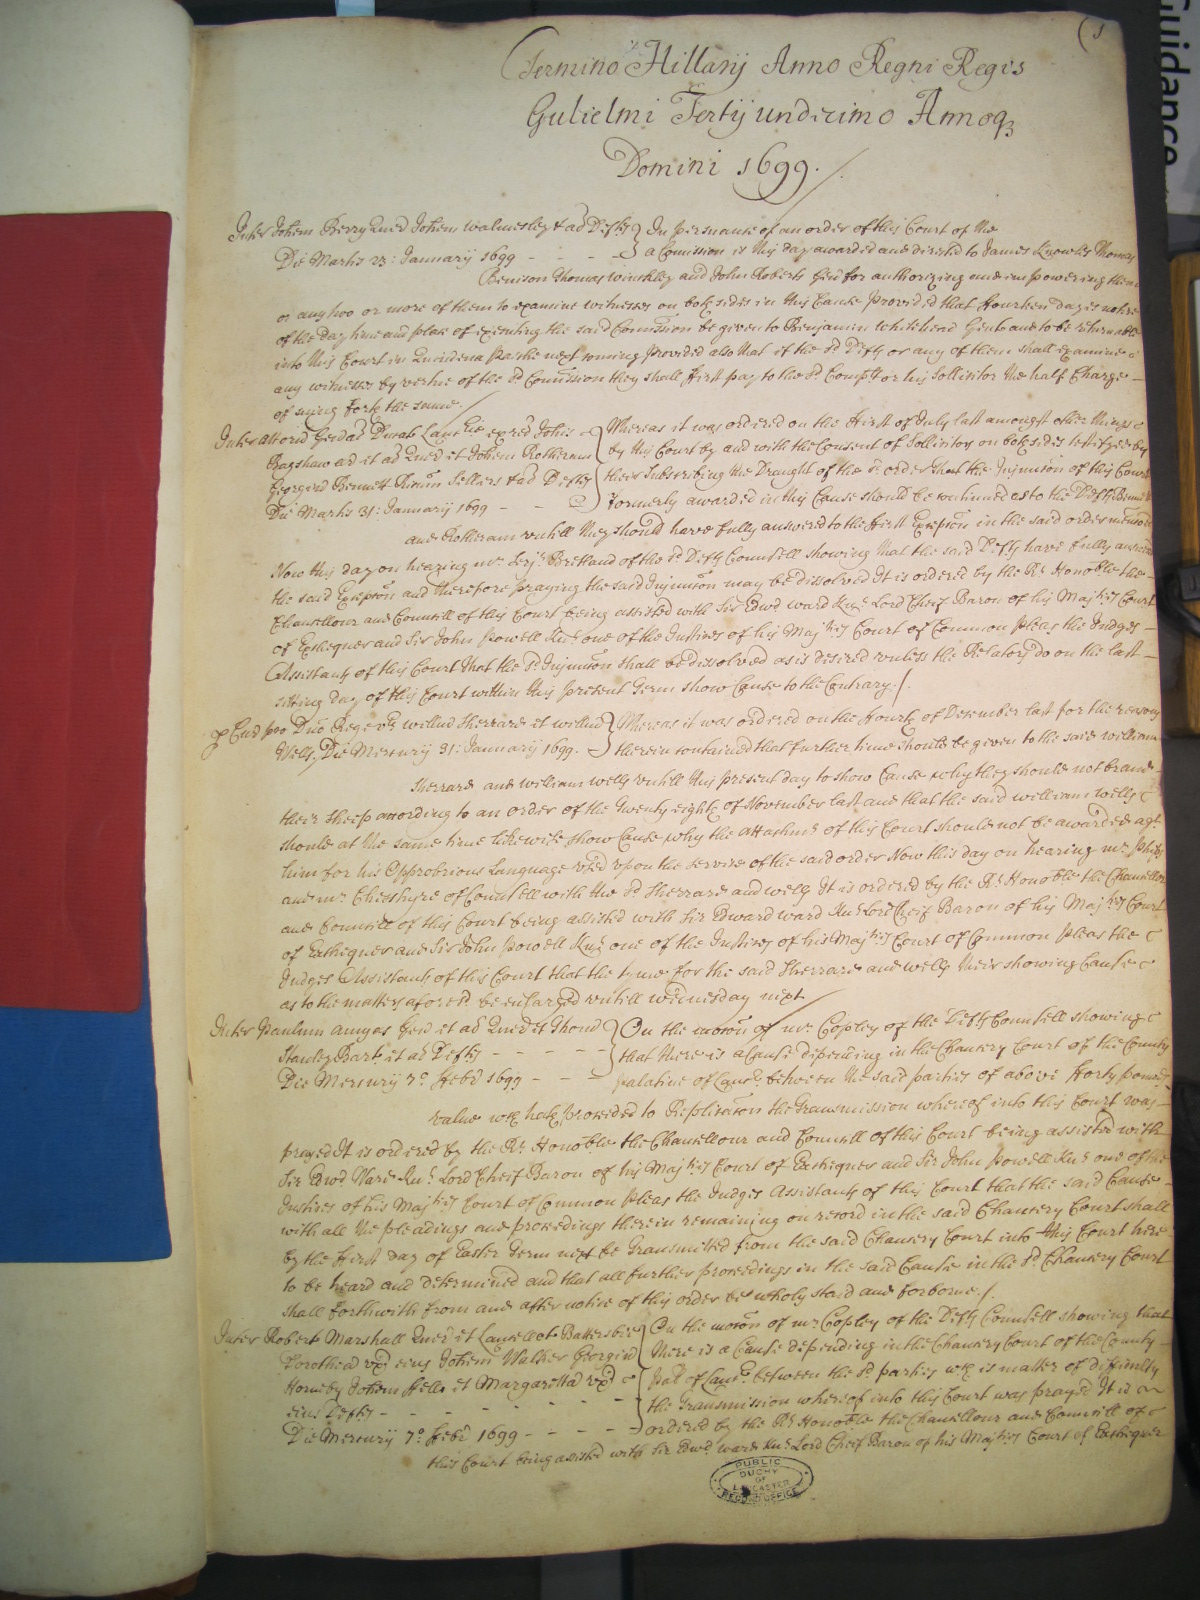 (1
Guidance
Termino Hillarij Anno Regni Regis
Gulielmi Tertij undecimo Annoq3
Domini 1699.
Inter Johem Berry Quer Johem Walmesley & ad Defts In persuance of an order of this Court of the
Die Martis 23: January 1699 - - - a Comission is this day awarded and directed to James Knowles Thomas
Benison Thomas Winckley and John Roberts Gen for authorizing and impowering them
or any two or more of them to examine witnesses on both sides in this Cause Provided that fourteen dayes notice
of the Day time and place of executing the said Comission be given to Benjamin Whitehead Gent and to be returnable
into this Court in Quindena Paschæ next coming Provided also that if the sd Defts or any of them shall examine
any witnesses by vertue of the sd Comission they shall first pay to the sd Complt or his Sollicitor the half Charge
of suing forth the same.
Inter Attorn Gen ad Ducat Lanc ex rel Johis Whereas it was ordered on the first of July last amongst other things
Bagshaw ar et ad Quer et Johem Rotheram by this Court by and with the Consent of Sollicitors on both sides testifyed by
Georgiu Bennett Sellers & ad Defts their Subscribing the Draught of the sd order that the Injuncon of this Court
Die Martis 31: January 1699 - - formerly awarded in this Cause should be continued as to the Defts
and Rotheram untill they should have fully answered to the first Excepcon in the said order menconed
Now this day on hearing mr Serjt Pretland of the sd Defts Counsell showing that the said Defts have fully answered
the said Excepcon and therefore praying the said Injuncon may be dissolved It is ordered by the Rt Honoble the
Chancellour and Councill of this Court being assisted with Sir Edwd Ward Knt Lord Cheif Baron of his Majties Court
of Exchequer and Sir John Powell Knt one of the Justices of his Majties Court of Common Pleas the Judges
Assistants of this Court that the sd Injuncon shall be dissolved as is desired unless the Relators do on the last
sitting day of this Court within this present Term show Cause to the Contrary.
Dno Rege vs Willm Sherrard et Willm Whereas it was ordered on the fourth of December last for the reasons
Wells Die Mercury 31: January 1699. therein contained that further time should be given to the said William
Sherrard and William Wells untill this present day to show Cause why they should not brand
their sheep according to an order of the Twenty eighth of November last and that the said William Wells
should at the same time likewise show Cause why the Attachmt of this Court should not be awarded agt
him for his Opprobrious Language used upon the service of the said order Now this day on hearing mr Phips
and mr Cheshyre of Counsell with the sd Sherrard and Wells It is ordered by the Rt Honoble the Chancellor
and Councill of this Court being assisted with Sir Edward Ward Knt Lord Cheif Baron of his Majties Court
of Exchequer and Sir John Powell Knt one of the Justices of his Majties Court of Common Pleas the
Judges Assistants of this Court that the time for the said Sherrard and Wells their showing Cause
as to the matters aforesd be enlarged untill Wednesday next
Inter Paulum Amyas Gen et ad Quer et Thomam On the mocon of mr Copley of the Defts Counsell showing
Stanley Bart et ad Defts - - - - - that there is a Cause depending in the Chancery Court of the County
Die Mercury 7o Febr 1699 - - - palatine of Lanc between the said parties of above forty pounds
value wch hath proceeded to Replicacon the Transmission whereof into this Court was
prayed It is ordered by the Rt Honoble the Chancellour and Councill of this Court being assisted with
Sir Edwd Ward Knt Lord Cheif Baron of his Majties Court of Exchequer and Sir John Powell Knt one of the
Justices of his Majties Court of Common Pleas the Judges Assistants of this Court that the said Cause
with all the pleadings and proceedings therein remaining on record in the said Chancery Court shall
by the first day of Easter Term next be Transmitted from the said Chancery Court into this Court here
to be heard and determined and that all further proceedings in the said Cause in the sd Chancery Court
shall forthwith from and after notice of this order be wholy staid and forborne.
Inter Robert Marshall Quer et Lancellot Battersbie On the mocon of mr Copley of the Defts Counsell showing that
Dorothea ux eius Johem Walker Georgiu there is a Cause depending in the Chancery Court of the County
Hornby Johem Hells et Margaretta ux Pal of Lanc between the sd parties wch is matter of difficulty
eius Defts - - - - - the Transmission whereof into this Court was prayed It is
Die Mercury 7o Febr 1699 - - - - ordered by the Rt Honoble the Chancellour and Councill of
this Court being assisted with Sir Edwd Ward Knt Lord Cheif Baron of his Majties Court of Exchequer
PUBLIC
DUCHY
OF
LANCASTER
RECORD OFFICE